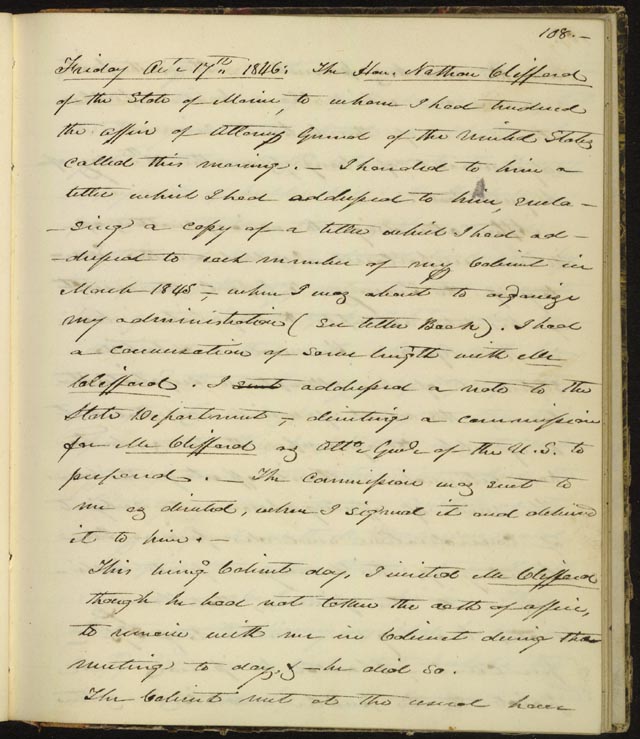 108.—
Friday Oct. 17th 1846: The Hon. Nathan Clifford
of the State of Maine, to whom I had tendered
the office of Attorney General of the United States
called this morning. — I handed to him a
letter which I had addressed to him, enclo-
-sing a copy of a letter which I had ad-
-dressed to each member of my Cabinet in
March 1845 —, when I was about to organize
my administration (see letter Book). I had
a conversation of some length with Mr
Clifford. I sent addressed a note to the
State Department —, directing a commission
for Mr Clifford as Atto. Genl. of the U.S. to
prepared. — The commission was sent to
me as directed, when I signed it and delivered
it to him. —
This being Cabinet day, I invited Mr Clifford
though he had not taken the oath of office,
to remain with me in Cabinet during the
meeting to day, & — he did so.
The Cabinet met at the usual hour